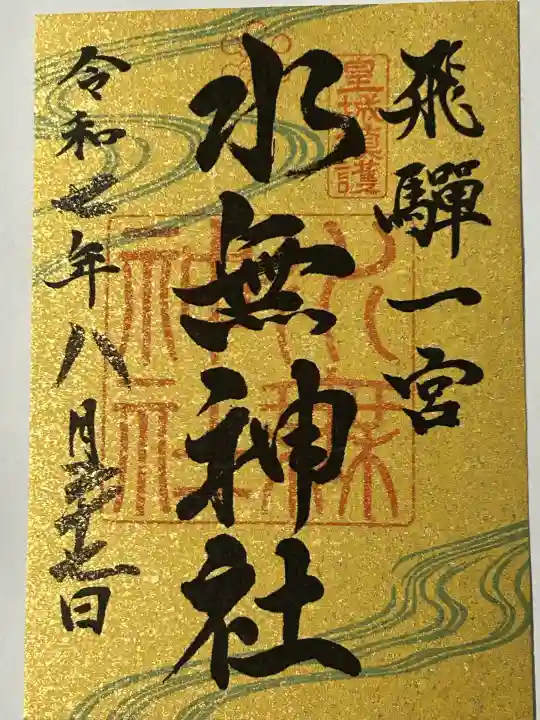 飛驒一宮
皇城鎮護
水無神社
水無神社
令和七年八月 日